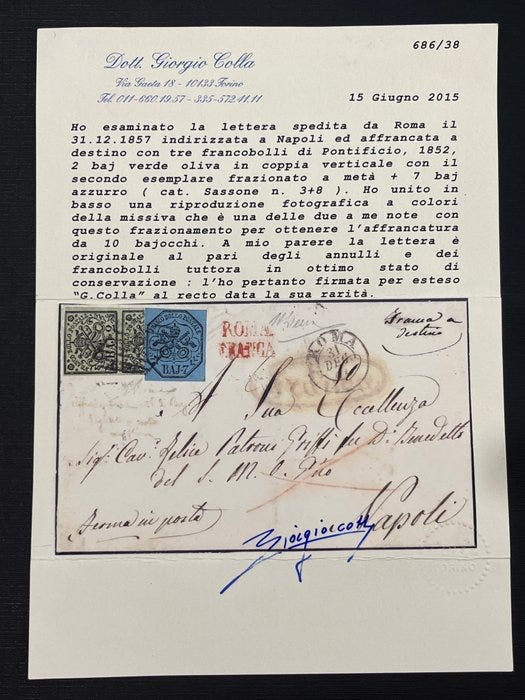 686/38
Dott. Giorgio Colla
Via Gaeta 18 - 10133 Torino
Tel. 011-660.19.57 - 335-572.41.11
15 Giugno 2015
Ho esaminato la lettera spedita da Roma il
31.12.1857 indirizzata a Napoli ed affrancata a
destino con tre francobolli di Pontificio, 1852,
2 baj verde oliva in coppia verticale con il
secondo esemplare frazionato a metà + 7 baj
azzurro ( cat. Sassone n. 3+8 ). Ho unito in
basso una riproduzione fotografica a colori
della missiva che è una delle due a me note con
questo frazionamento per ottenere l'affrancatura
da 10 bajocchi. A mio parere la lettera è
originale al pari degli annulli e dei
francobolli tuttora in ottimo stato di
conservazione : l'ho pertanto firmata per esteso
"G.Colla" al recto data la sua rarità.
ROMA
FRANCA
BAJ-7
ROMA
31
DEC
Franca a
destino
A Sua Eccellenza
Sigr Cavr Felice Patroni Griffi di Dn Benedetto
del S. M. e Pno
Ferma in posta
Napoli